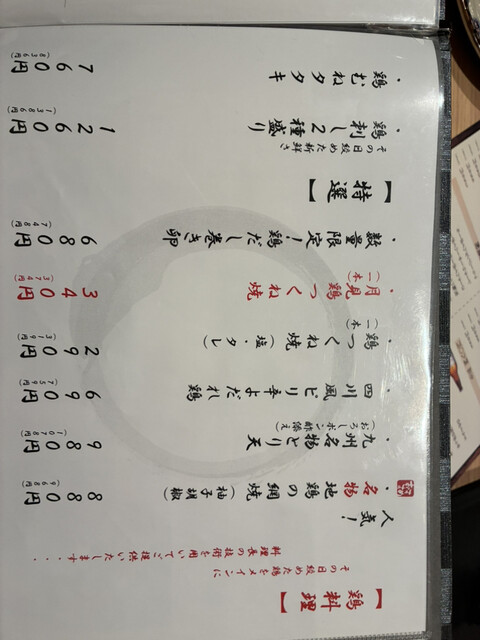 【鶏料理】
その日絞めた鶏をメインに
料理長の技術を用いてご提供いたします・・・
人気!
・名物 地鶏の網焼(柚子胡椒)
880円
(968円)
・九州名物とり天
(おろしポン酢添え)
980円
(1078円)
・四川風ピリ辛よだれ鶏
690円
(759円)
・鶏つくね焼(塩・タレ)
(一本)
290円
(319円)
・月見鶏つくね焼
(一本)
340円
(374円)
・数量限定!鶏だし巻き卵
680円
(748円)
【特選】
その日絞めた新鮮さ
・鶏刺し2種盛り
1260円
(1386円)
・鶏むねタタキ
760円
(836円)